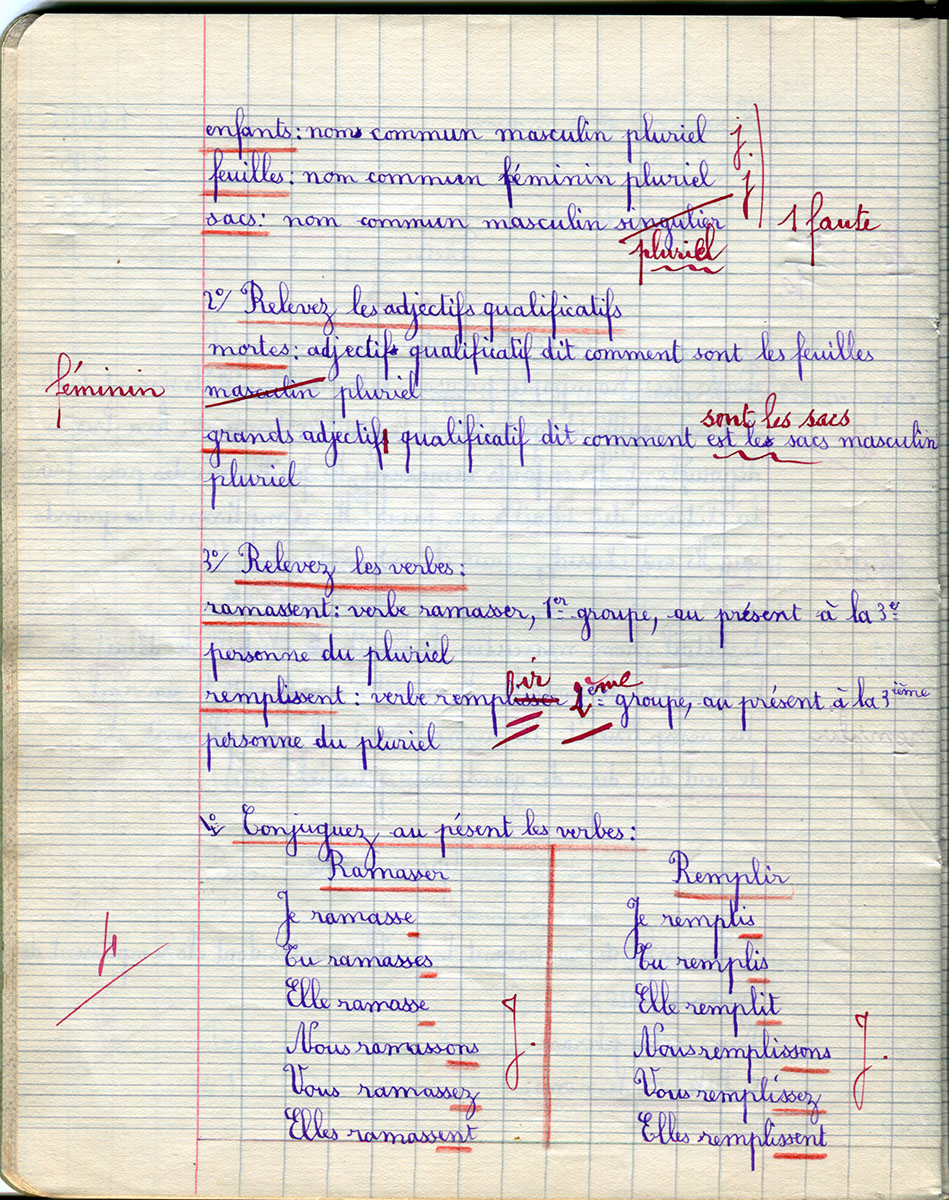 enfants : noms commun masculin pluriel j.
feuilles : nom commun féminin pluriel j
sacs : nom commun masculin singulier 1 faute
pluriel
2°/ Relevez les adjectifs qualificatifs
mortes : adjectif qualificatif dit comment sont les feuilles
féminin masculin pluriel
sont les sacs
grands adjectif qualificatif dit comment est les sacs masculin
pluriel
3°/ Relevez les verbes :
ramassent : verbe ramasser, 1er groupe, au présent à la 3e
personne du pluriel
ir ème
remplissent : verbe remplisser 2 groupe, au présent à la 3ième
personne du pluriel
Conjuguez au pésent les verbes :
Ramasser Remplir
Je ramasse Je remplis
Tu ramasses Tu remplis
Elle ramasse Elle remplit
Nous ramassons j. Nous remplissons j.
Vous ramassez Vous remplissez
Elles ramassent Elles remplissent